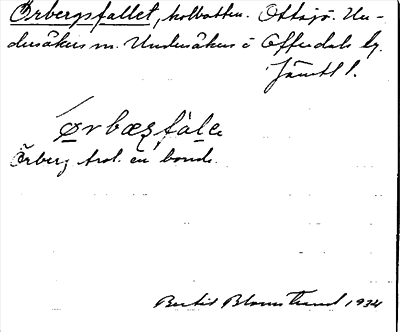 Örbergsfallet, kolbotten. Ottsjö. Un-
dersåkers sn. Undersåkers o Offerdals tg.
Jämtl l.
ørbæsfàle
Örberg trol. en bonde.
Bertil Blomstrand 1934